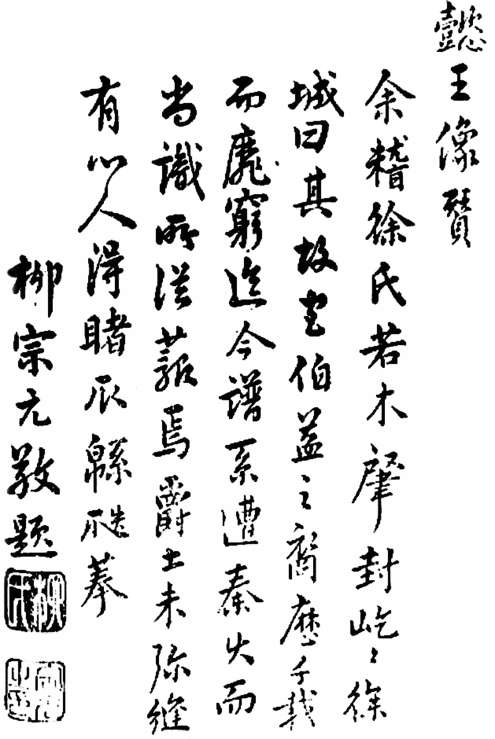 懿王像贊
余稽徐氏若木肇封屹〻徐
城曰其故宅伯益之裔歷千載
而靡窮迄今譜系遭秦火而
尚識所從焉爵土未弥縫
有心人得睹厥緜瓞菶
柳宗元敬題